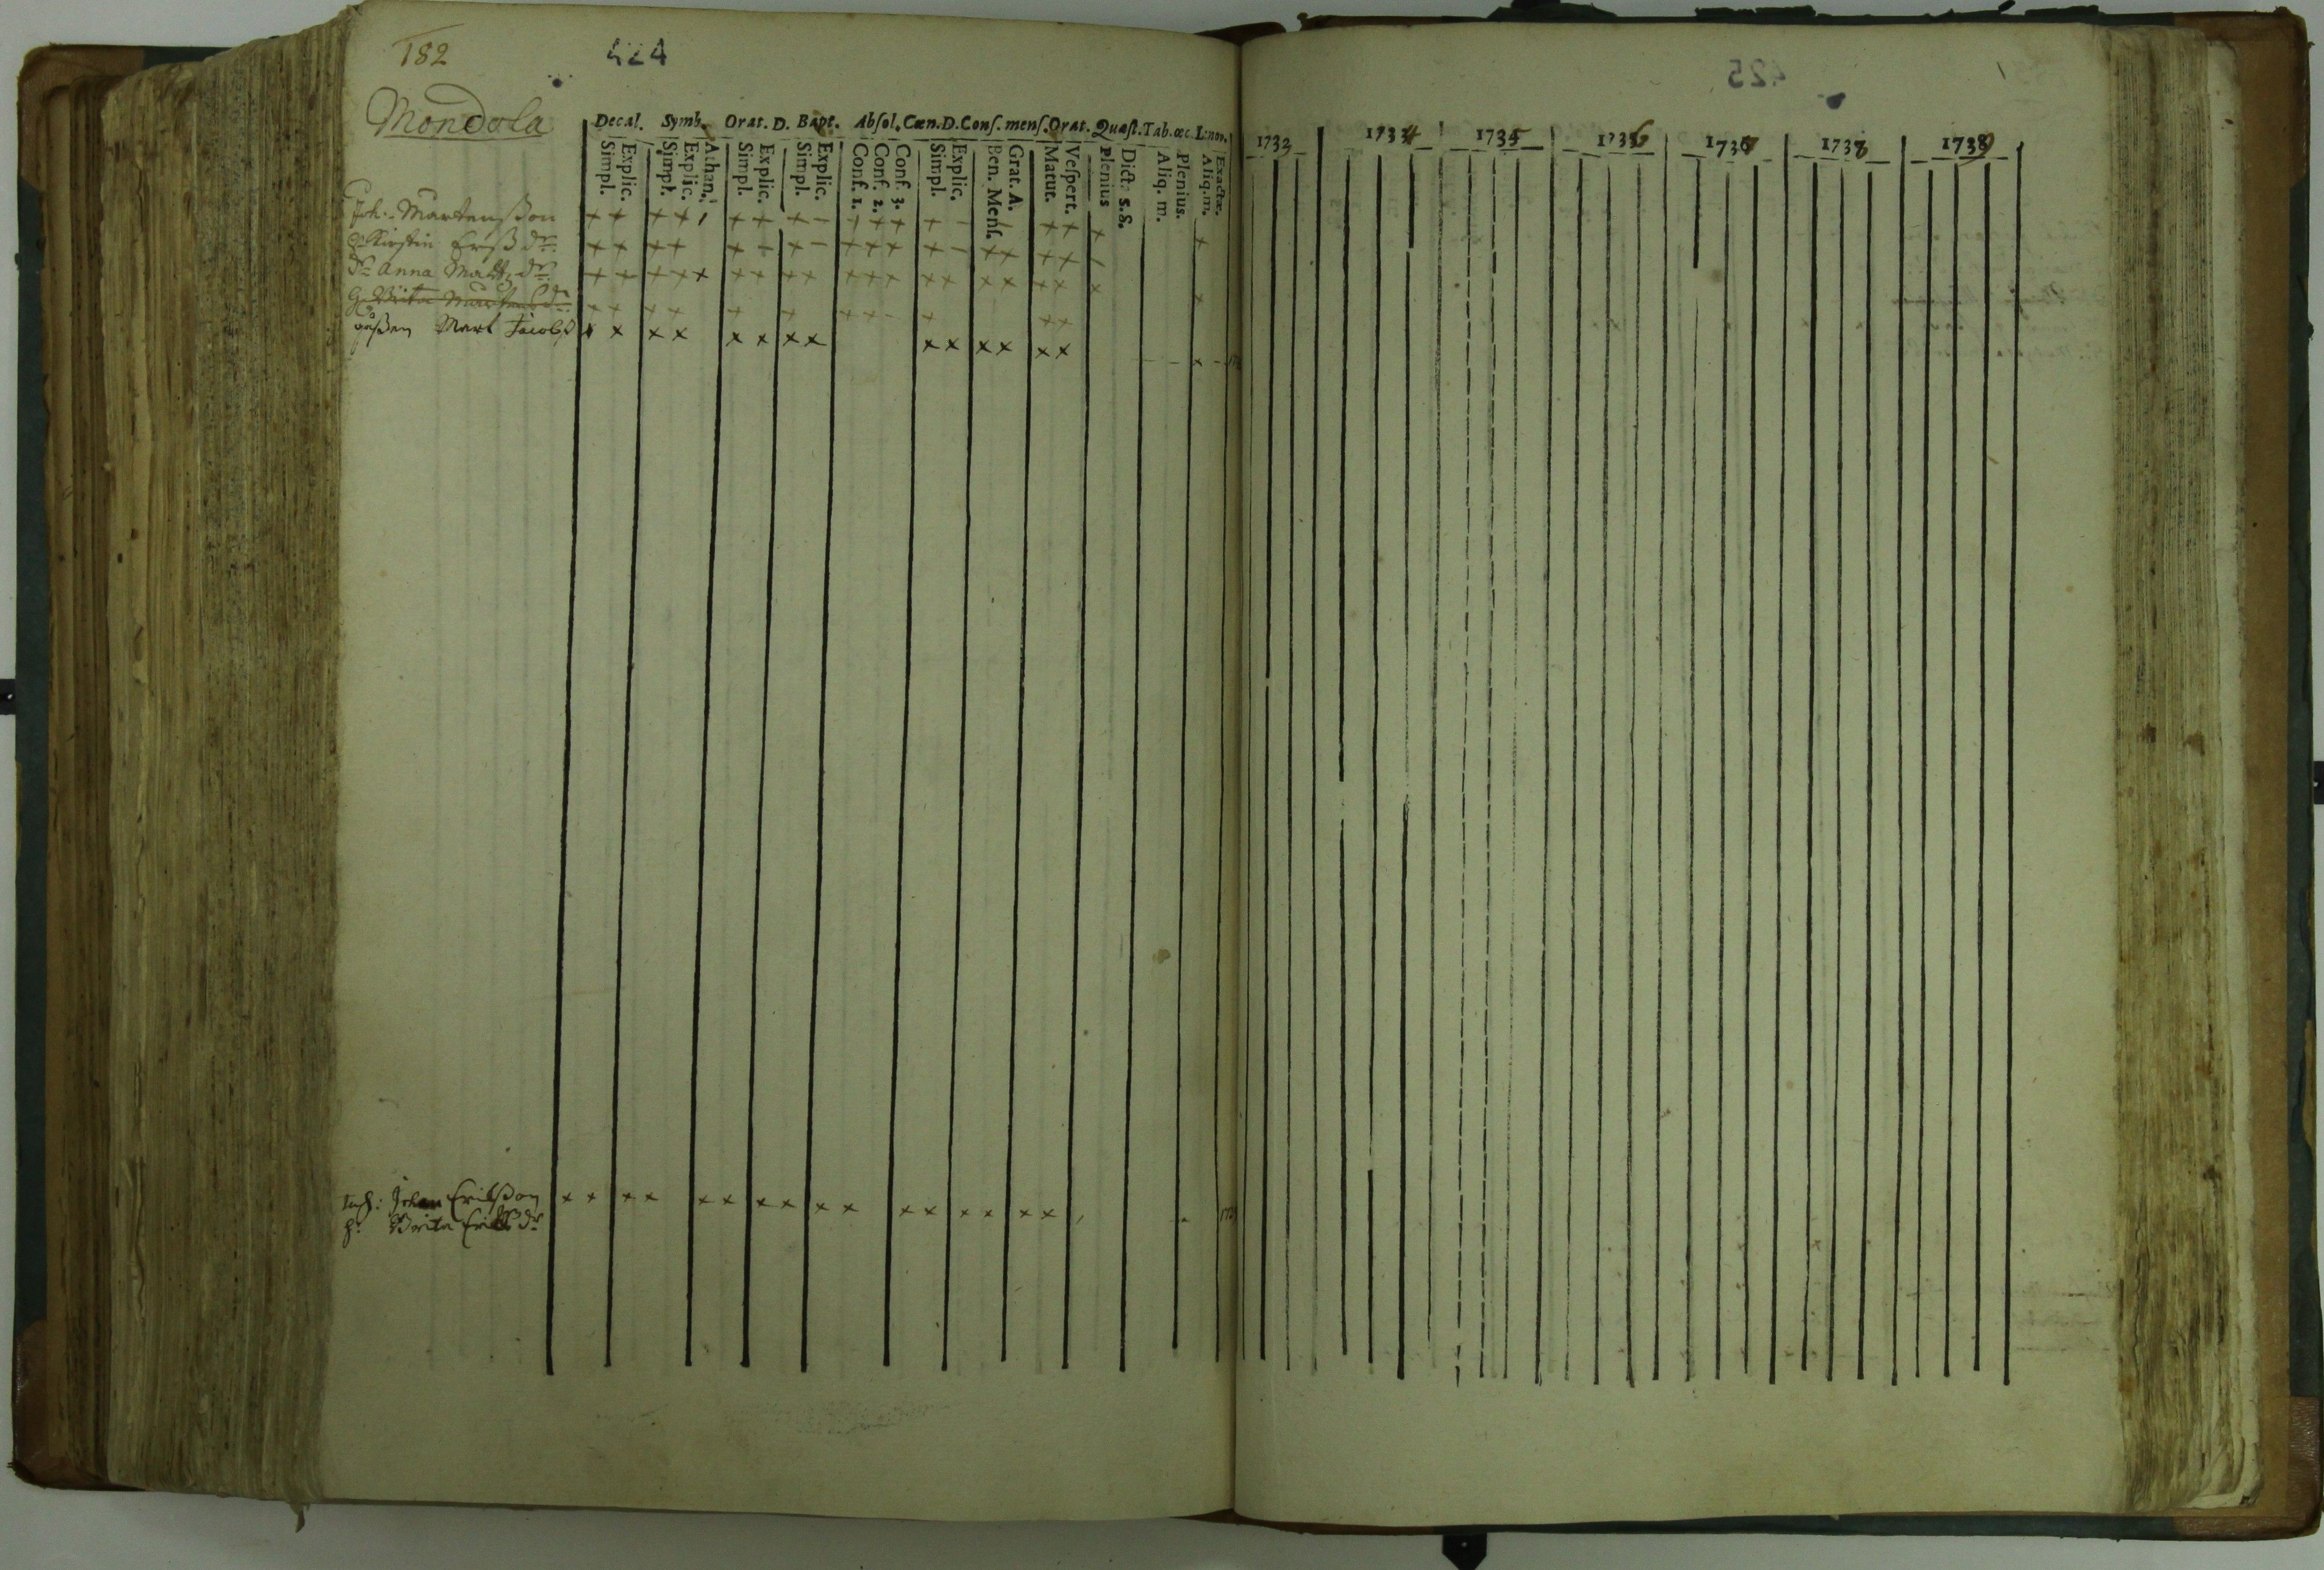 182
424
425
Mondola
Decal. Symb. Orat. D. Bapt. Absol. Cæn. D. Conf. mens. Orat. Quæst. Tab. œc. L: nov.
Simpl. Explic. Simpl. Explic. Athan. Simpl. Explic. Simpl. Explic. Conf. 1. Conf. 2. Conf. 3. Simpl. Explic. Ben. Mens. Grat. A. Matut. Vespert. Plenius Dict. S.S. Aliq. m. Plenius. Aliq. m. Exactæ.
1733 1734 1735 1736 1737 1738 1739
Joh. Martensson + + + + / + + + / + + + + / + +
H: Kirstin Erss dr + + + + + / + / + + + + / + + + + + +
Anna Matts dr + + + + + + + + + + + + + + + + + + /
Brita Martens dr + + + + + + + + - + + + + +
Mart Jacobss x x x x x x x x x x x x x x x
Inh: Johan Eriksson x x x x x x x x x x x x x x x x /
h: Brita Eriks dr